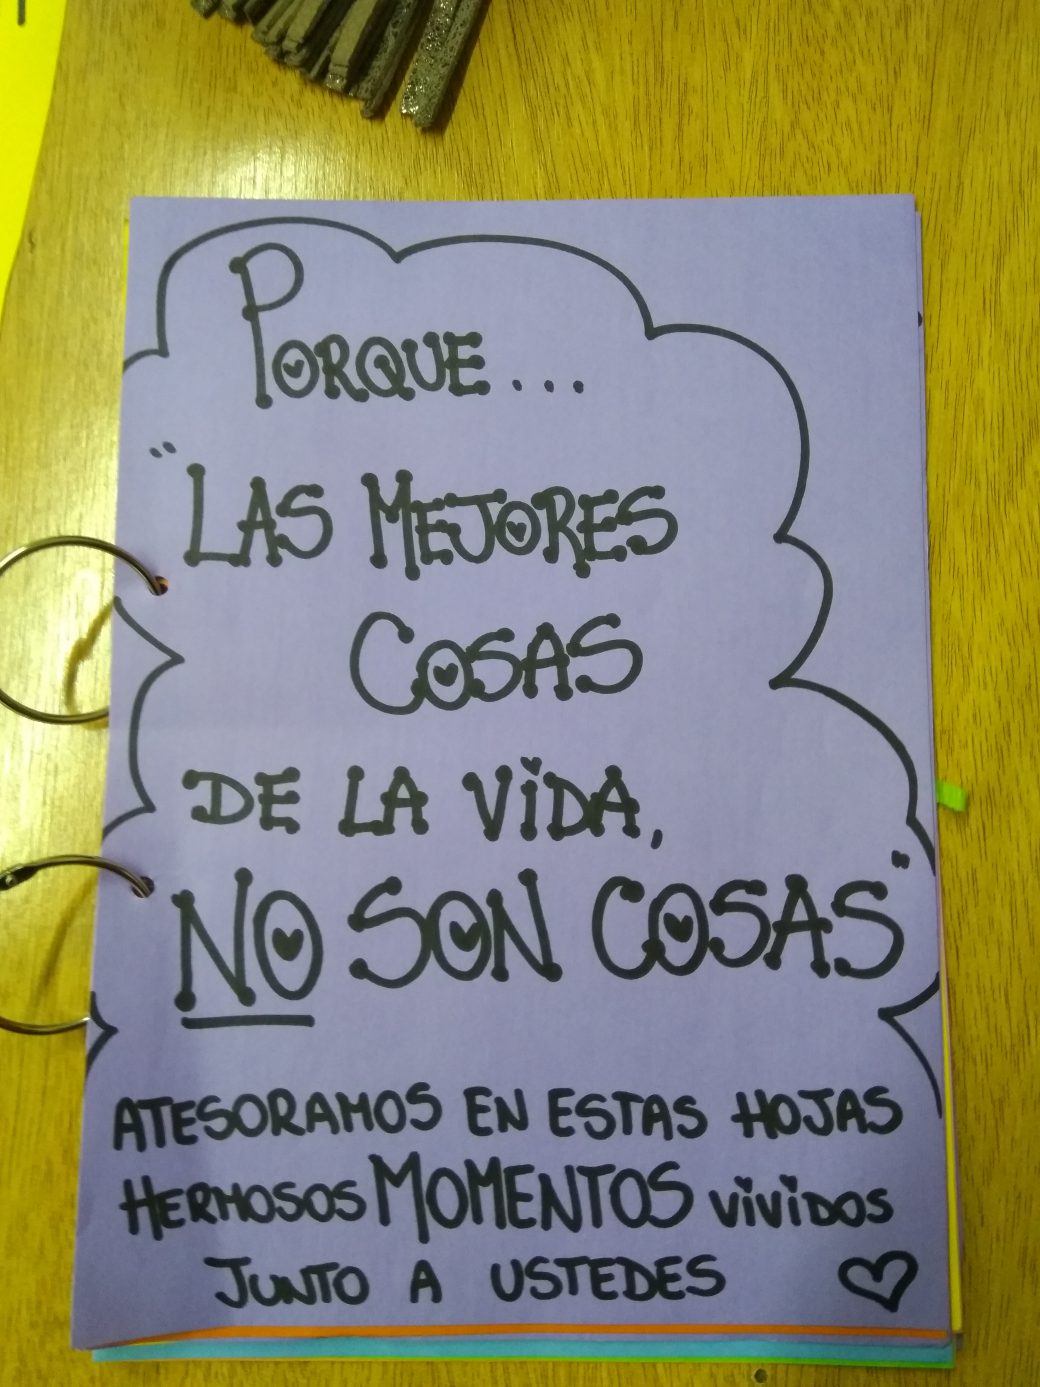 PORQUE...
"LAS MEJORES
COSAS
DE LA ViDA,
NO SON COSAS"
ATESORAMOS EN ESTAS HOJAS
HERMOSOS MOMENTOS ViViDOS
JUNTO A USTEDES